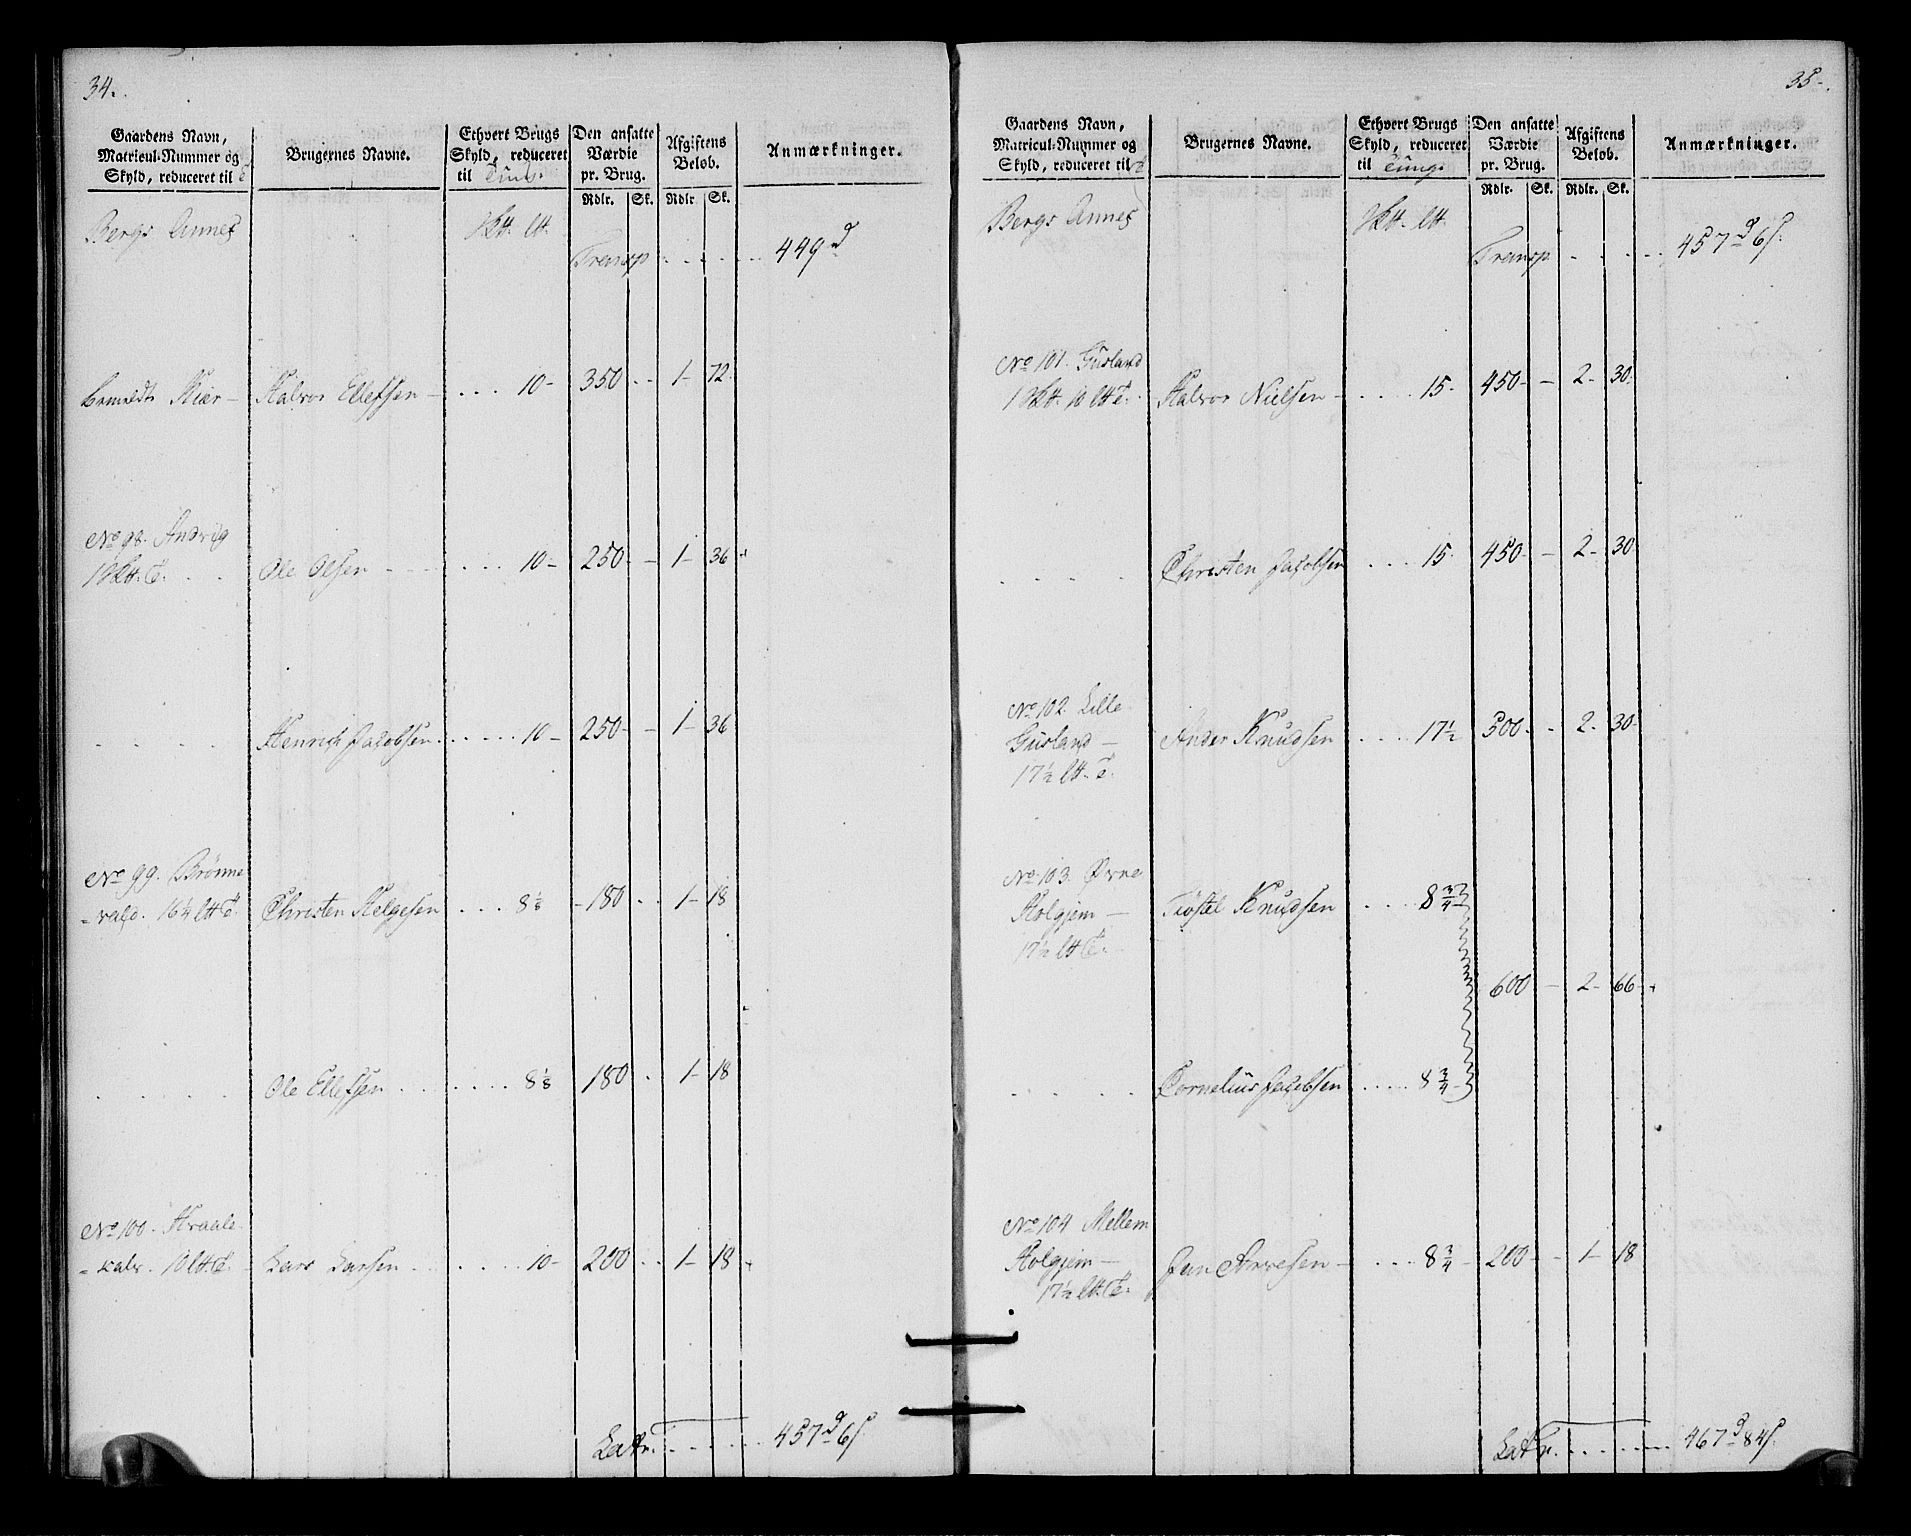 34.
Gaardens Navn,
Matricul-Nummer og
Skyld, reduceret til T
Brugernes Navne.
Ethvert Brugs
Skyld, reduceret
til Tung.
Den ansatte
Værdie
pr. Brug.
Rdlr. Sk.
Afgiftens
Beløb.
Rdlr. Sk.
Anmærkninger.
Bergs Annex
Transp . . . . . 449 d
Kiær — Halvor Ellefsen — . . . 10 — 350 . . 1 — 72.
No 98.
Ole Olsen . . . 10 — 250 — 1 — 36
. . . . Henrich Jacobsen . . . . . 10 — 250 — — 1 — 36
No 99. Brönne
- vald. 16 1/4 Christen Helgesen . . . 8 1/8 — 180 . . 1 — 18
. . . . Ole Ellefsen . . . . . . 8 1/8 180 . 1 — 18
No 100. Hraale
Lars Larsen . . . . . 10 — 200 . . 1 — 18
Latr. . . . . . 457 d 6 s
35.
Gaardens Navn,
Matricul-Nummer og
Skyld, reduceret til T
Brugernes Navne.
Ethvert Brugs
Skyld, reduceret
til Tung.
Den ansatte
Værdie
pr. Brug.
Rdlr. Sk.
Afgiftens
Beløb.
Rdlr. Sk.
Anmærkninger.
Bergs Annex
Transp . . . . . 457 d 6 s.
No 101. Gusland
Halvor Nielsen — . . . . 15. 450 — — 2 — 30.
. . . . Christen Jacobsen . . . 15. 450 — — 2 — 30
No 102. Lille
Gusland — Ander Knudsen . . . . 17 1/2 500 — . 2. 30
17 1/2
No 103. Øvre
Holgjem — Tiøstel Knudsen . . . . 8 3/4
17 1/2
600 — 2 — 66
. . . . Cornelius Jacobsen . . . . . 8 3/4
No 104 Mellem
Holgjem — Jan — . . . 8 3/4 — 200 — 1 — 18
17 1/2
Latr. . . . . . 467 d 84 s.